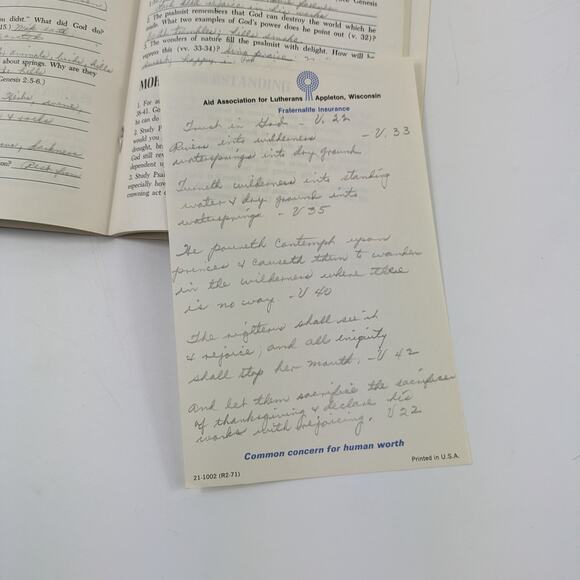 didst." What did God do?
15.)
about springs. Why are they
Genesis 2:5-6.)
2. The psalmist remembers that God can destroy the world which he
What two examples of God's power does he point out (v. 32)?
3. The wonders of nature fill the psalmist with delight. How will he
express this (vv. 33-34)?
MOR
1. For
38-41. Go
he can do
2. Study P
would you
drought, br
God still rev
dependent u
3. Study Psal
especially how
crowning act o
Aid Association for Lutherans Appleton, Wisconsin
Fraternalife Insurance
Trust in God - V. 22
Rivers into wilderness - V. 33
watersprings into dry ground
Turneth wilderness into standing
water & dry ground into
watersprings - V 35
He poureth contempt upon
princes & causeth them to wander
in the wilderness where there
is no way. - V 40
The righteous shall see it
& rejoice; and all iniquity
shall stop her mouth. - V 42
And let them sacrifice the sacrifices
of thanksgiving & declare his
works with rejoicing. V 22
Common concern for human worth
21-1002 (R2-71)
Printed in U.S.A.